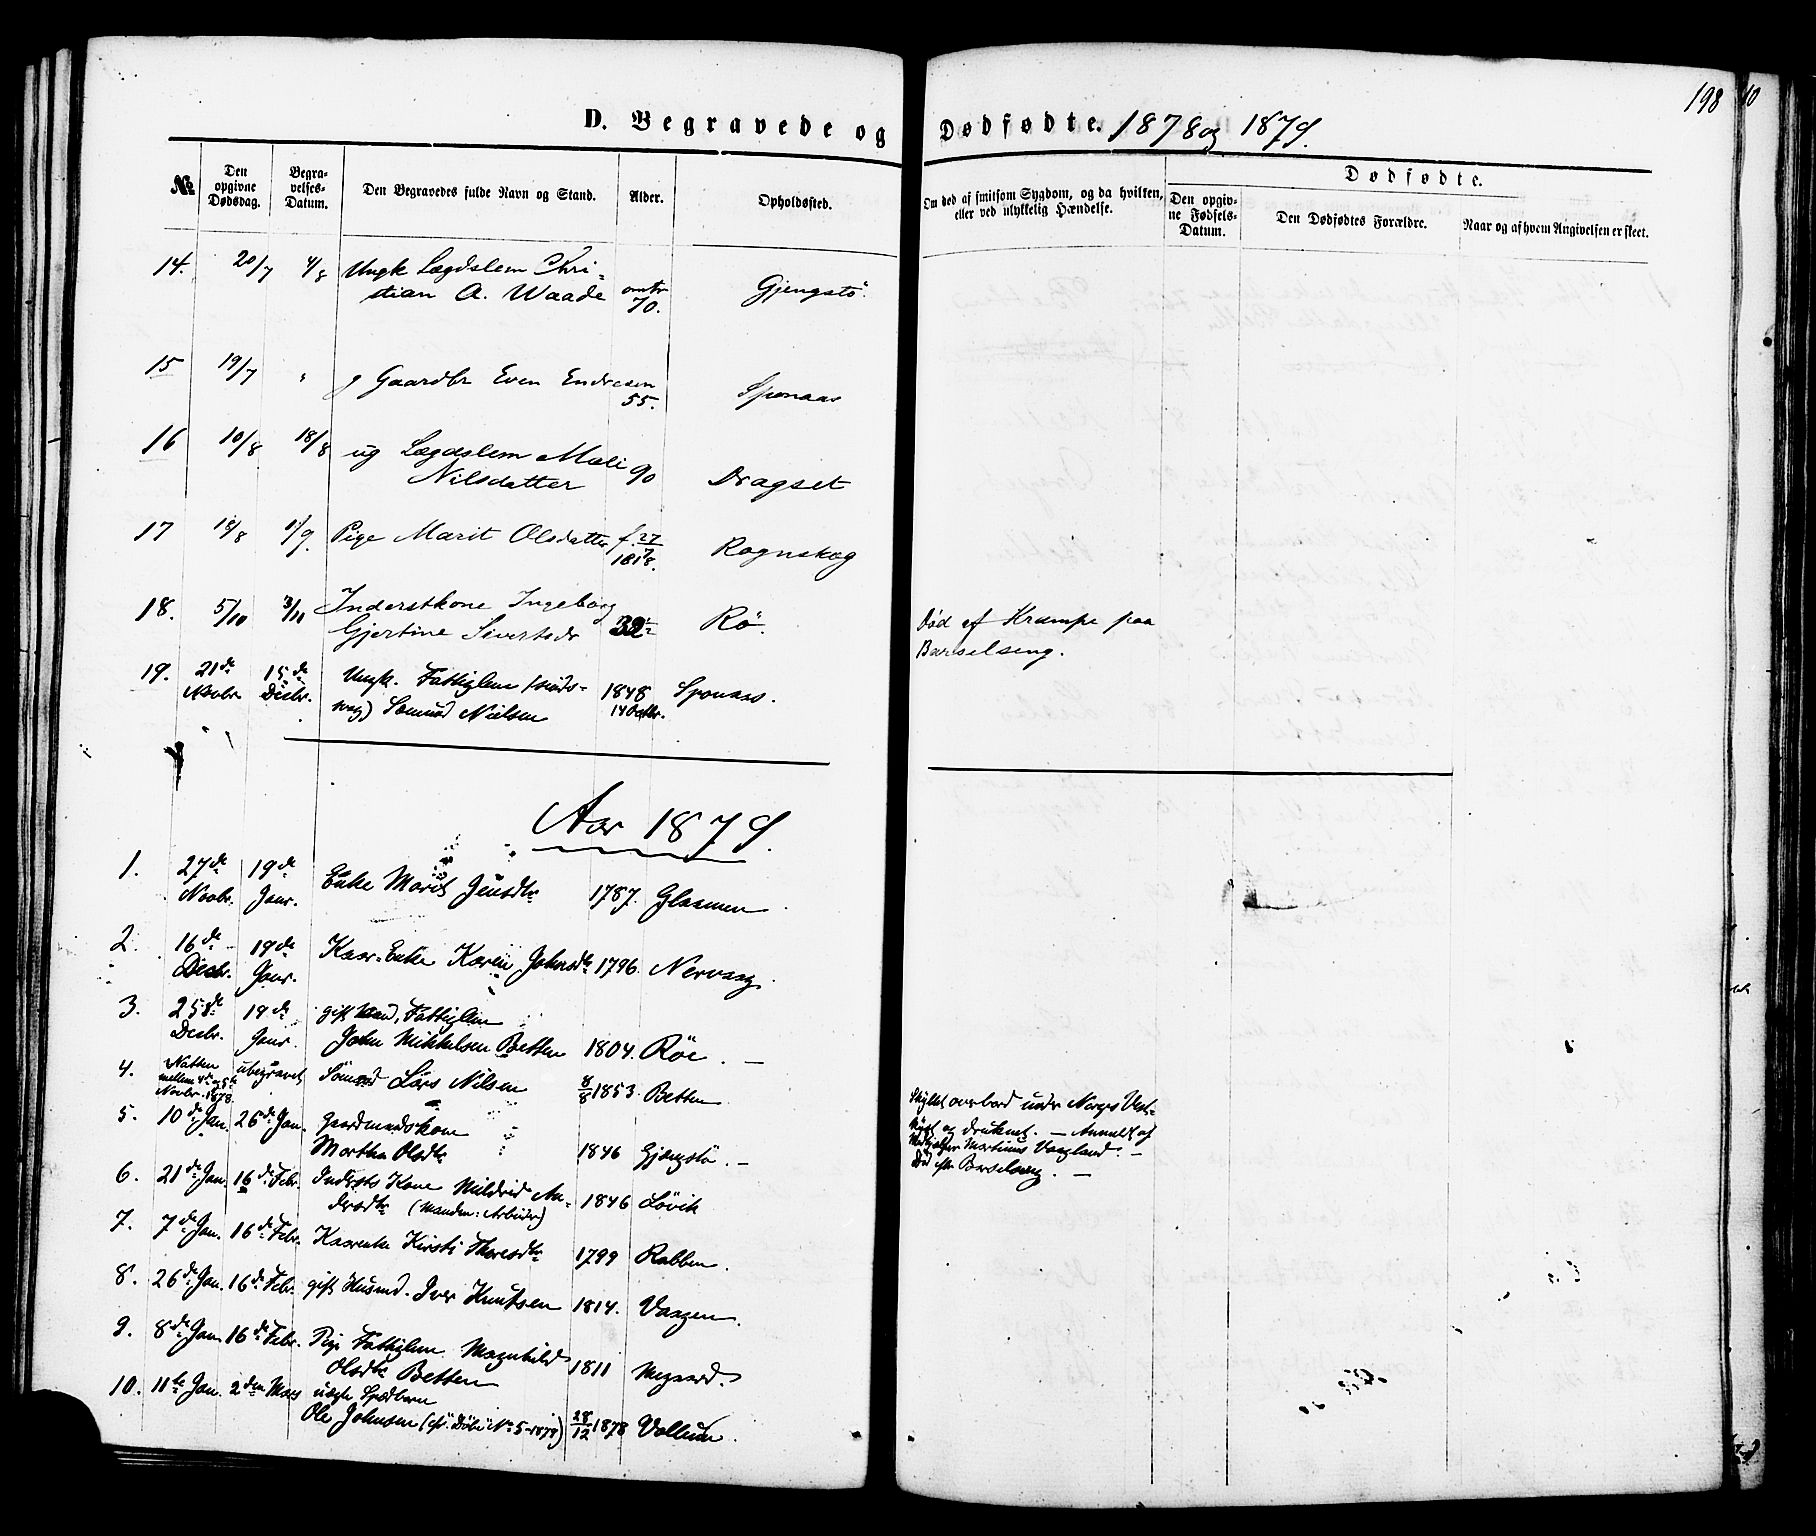 198
D. Begravede og Dødfødte. 1878 og 1879.
№
Den opgivne Dødsdag.
Begravelses-Datum.
Den Begravedes fulde Navn og Stand.
Alder.
Opholdssted.
Om død af smitsom Sygdom, og da hvilken, eller ved ulykkelig Hændelse.
Dødfødte.
Den opgivne Fødsels-Datum.
Den Dødfødtes Forældre.
Naar og af hvem Angivelsen er skeet.
14. 20/7 4/8 Ungk Lægdslem Chri-
stian A. Waade omtr 70. Gjengstö.
15 19/7 " g Gaardbr Even Endresen
55. Sponaas
16 10/8 18/8 ug Lægdslem Mali
Nilsdatter 90 Dragset
17 18/8 1/9. Pige Marit Olsdatter f. 27/7 1818. Rognskog
18. 5/10 3/11 Inderstkone Ingeborg
Gjertine Sivertsdr 32 Rö. Död af Krampe paa
Barselseng.
19. 21de Novbr. 15de Decbr. Ungk. Fattiglem (sinds-
svag) Sömund Nielsen 1848 14 Octbr. Sponaas.
Aar 1879.
1. 27de Novbr. 19de Janr. Enke Marit Jensdtr 1787. Glasmen
2. 16de Decbr. 19de Janr. Kaar-Enke Karen Johnsdtr 1796. Nervaag.
3. 25de Decbr. 19de Janr. gift Mand, Fattiglem
John Mikkelsen Betten 1804. Röe. —
4. Natten mellem 4de og 5te Novbr. 1878. ubegravet Sömand Lars Nilsen 8/8 1853. Betten Skyllet overbord under Norges Vest-
kyst og druknet. — Anmeldt af
Medhjælper Martinus Vaagland. —
5. 10de Jan. 26de Jan. Gaardmandskone
Martha Olsdtr 1846 Gjengstö. — Död efter Barselseng. —
6. 21de Jan. 16de Febr. Indersts Kone Mildrid An-
dersdtr (Manden: Arbeider) 1846 Lövik
7. 7de Jan. 16de Febr. Kaarenke Kirsti Thoresdtr 1799 Rabben.
8. 26de Jan. 16de Febr. gift Husmd. Iver Knutsen 1814. Vaagen.
9. 8de Jan. 16de Febr. Pige Fattiglem Magnhild
Olsdtr Betten 1811 Megaard.
10. 11te Jan. 2den Mars uægte Spædbarn
Ole Johnsen (cfr. Döbte No 5-1879) 28/12 1878 Vollum.